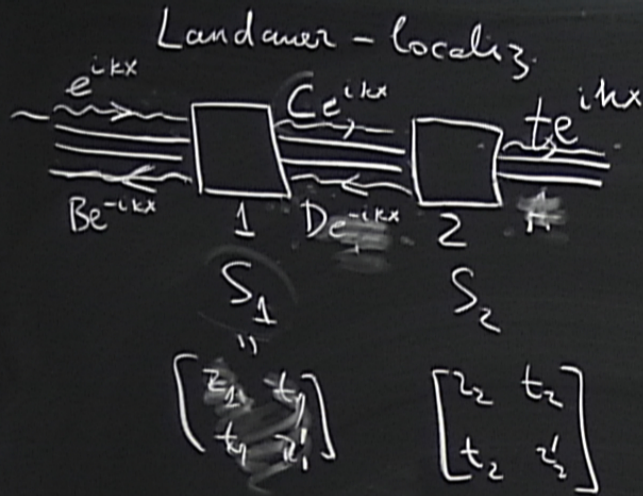 Landauer - localiz.
e^{ikx} Ce^{ikx} te^{ikx}
Be^{-ikx} 1 De^{-ikx} 2
S_1 S_2
=
(r_1 t_1 [r_2 t_2
t_1 r'_1) t_2 r'_2]